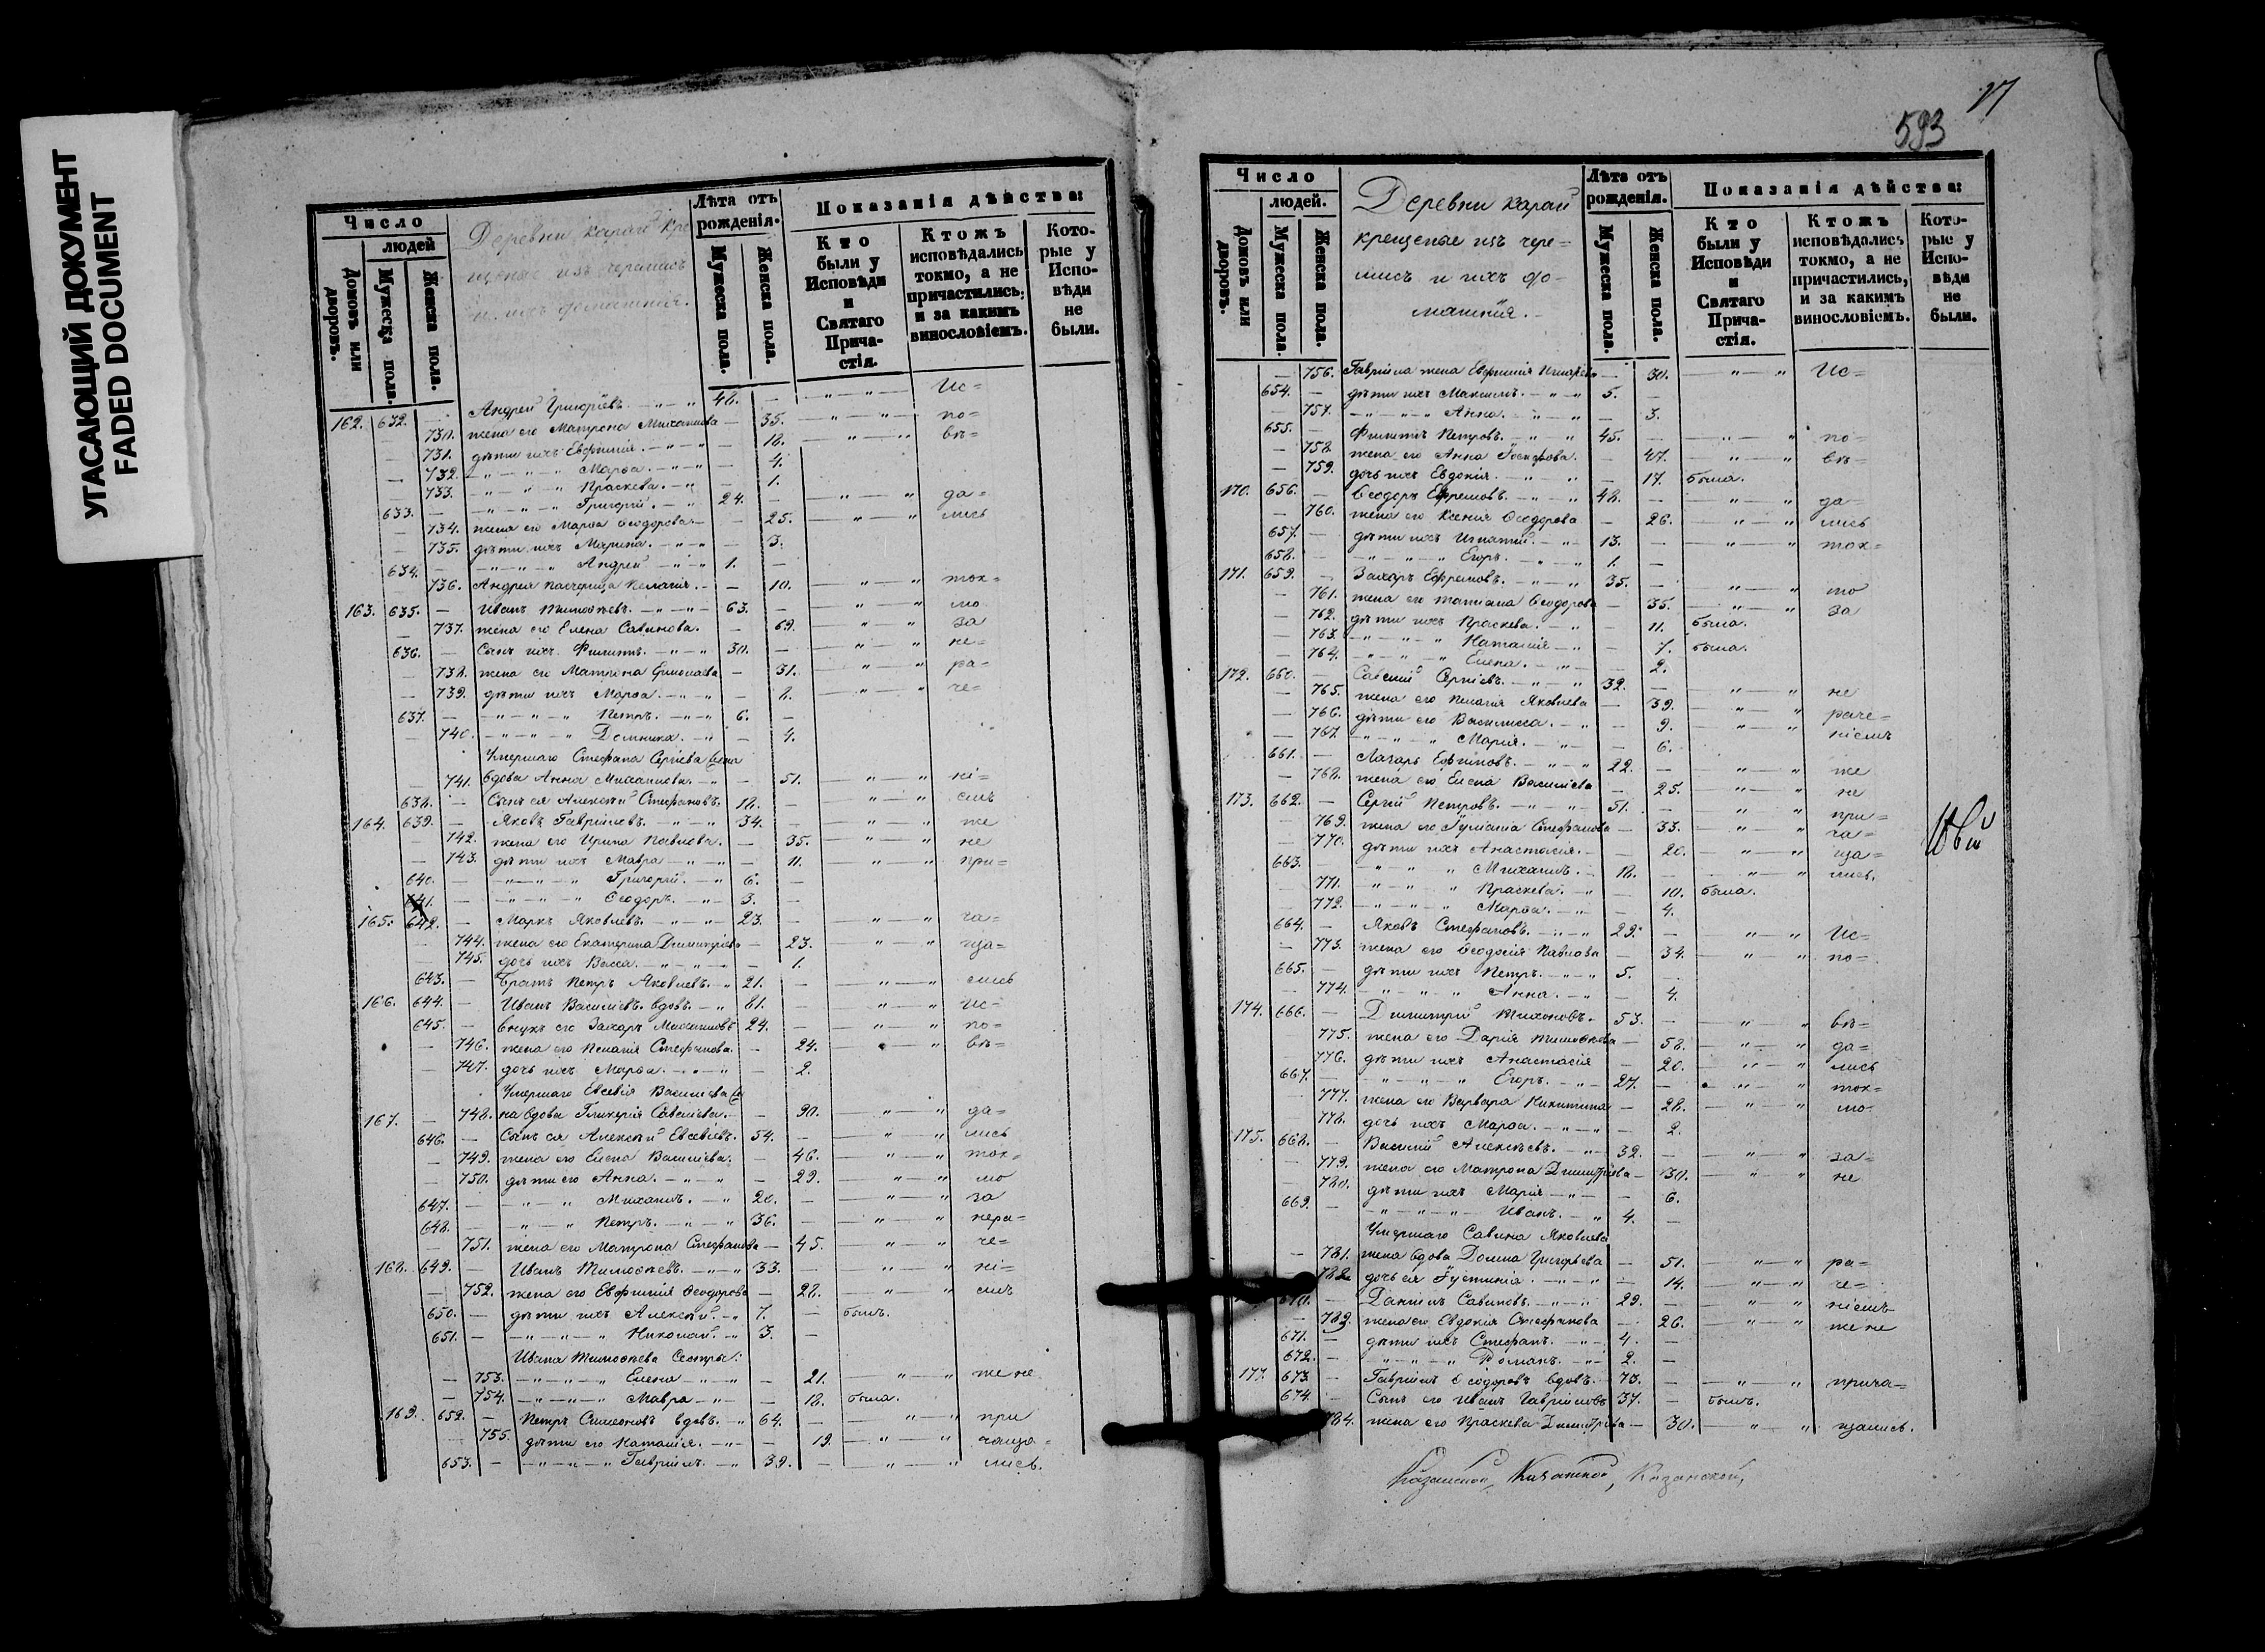 УГАСАЮЩИЙ ДОКУМЕНТ
FADED DOCUMENT
Число
людей
Домовъ или дворовъ.
Мужеска пола.
Женска пола.
Деревни карай кре
щеные изъ черемисъ
и ихъ домашнія.
Лѣта отъ рожденія.
Мужеска пола.
Женска пола.
Показанія дѣйства:
Кто были у Исповѣди и Святаго Причастія.
Ктожъ исповѣдались токмо, а не причастились, и за какимъ винословіемъ.
Которые у Исповѣди не были.
162. 632. — Андрей Григорьевъ. 48. — Ис=
— 730. жена его Матрона Михаилова — 35. по=
— 731. дѣти ихъ Евфимія. — 18. вѣ=
— 732. Марѳа. — 4.
— 733. Праскева. — 1.
633. — Григорій. 24. — да=
— 734. жена его Марѳа Ѳеодорова — 25. лись
— 735. дѣти ихъ Марина. — 3.
634. — Андрей 1. —
736. Андрея падчерица Пелагія. — 10. ток=
163. 635. — Иванъ Тимоѳеевъ. 63. — мо
— 737. жена его Елена Савинова. — 69. за
636. — Сынъ ихъ Филиппъ. 30. — не=
— 738. жена его Матрона Ермолаева — 31. ра=
— 739. дѣти ихъ Марѳа. — 8. че=
637. — Петръ. 6. —
— 740. Домника. — 4.
Умершаго Стефана Сергіева жена
— 741. вдова Анна Михаилова. — 51. ні=
638. — Сынъ ея Алексѣй Стефановъ. 18. — емъ
164. 639. — Яковъ Гавріиловъ. 34. — же
— 742. жена его Ирина Павлова. — 35. не
— 743. дѣти ихъ Мавра — 11. при=
640. — Григорій. 6. —
641. — Ѳеодоръ. 3. —
165. 642. — Маркъ Яковлевъ. 23. — ча=
— 744. жена его Екатерина Димитріева — 23. ща=
— 745. дочь ихъ Васса. — 1.
643. — Братъ Петръ Яковлевъ. 21. — лись
166. 644. — Иванъ Васильевъ вдовъ. 81. — Ис=
645. — внукъ его Захаръ Михаиловъ 24. — по=
— 746. жена его Пелагія Стефанова. — 24. вѣ=
— 747. дочь ихъ Марѳа. — 2.
Умершаго Евсевія Васильева же
167. — 748. на вдова Гликерія Савельева. — 90. да=
646. — Сынъ ея Алексѣй Евсевіевъ. 54. — лись
— 749. жена его Елена Васильева. — 46. ток=
— 750. дѣти его Анна. — 29. мо
647. — Михаилъ. 20. — за
648. — Петръ. 36. — нера=
— 751. жена его Матрона Стефанова — 45. че=
168. 649. — Иванъ Тимоѳеевъ. 33. — ні=
— 752. жена его Евфимія Ѳеодорова — 28. емъ
650. — дѣти ихъ Алексѣй. 7. — былъ.
651. — Николай. 3. —
Ивана Тимоѳеева Сестры:
— 753. Елена — 21. же не
— 754. Мавра — 18. была.
169. 652. — Петръ Симеоновъ вдовъ. 64. — при
— 755. дѣти его Наталія. — 19. чаща=
653. — Гавріилъ. 39. — лись.
593
17
Число
людей.
Домовъ или дворовъ.
Мужеска пола.
Женска пола.
Деревни карай
крещеные изъ чере=
мисъ и ихъ до=
машнія.
Лѣта отъ рожденія.
Мужеска пола.
Женска пола.
Показанія дѣйства:
Кто были у Исповѣди и Святаго Причастія.
Ктожъ исповѣдались токмо, а не причастились, и за какимъ винословіемъ.
Которые у Исповѣди не были.
— 756. Гавріила жена Евфимія — 30. Ис=
654. — дѣти ихъ Максимъ. 5. —
— 757. Анна. — 3.
655. — Филиппъ Петровъ. 45. — по=
— 758. жена его Анна Іосифова. — 47. вѣ=
— 759. дочь ихъ Евдокія. — 17. была.
170. 656. — Ѳеодоръ Ефремовъ. 48. — да=
— 760. жена его Ксенія Ѳеодорова — 26. лись
657. — дѣти ихъ Игнатій. 13. — ток=
658. — Егоръ. 1. —
171. 659. — Захаръ Ефремовъ. 35. — мо
— 761. жена его Татіана Ѳеодорова — 35. за
— 762. дѣти ихъ Праскева. — 11. была.
— 763. Наталія — 7. была.
— 764. Елена. — 2.
172. 660. — Савелій Сергіевъ. 32. — не
— 765. жена его Пелагія Яковлева — 39. раче=
— 766. дѣти его Василисса. — 9. ніемъ
— 767. Марія. — 6.
661. — Лазарь Евфимовъ. 22. — же
— 768. жена его Елена Васильева — 25. не
173. 662. — Сергій Петровъ. 51. — при=
769. жена его Іуліанія Стефанова — 33. ча=
— 770. дѣти ихъ Анастасія. — 20. ща=
663. — Михаилъ. 18. — лись.
— 771. Праскева. — 10. была.
— 772. Марѳа. — 4.
664. — Яковъ Стефановъ. 29. — Ис=
— 773. жена его Ѳеодосія Павлова — 34. по=
665. — дѣти ихъ Петръ. 5. —
774. Анна. — 4.
174. 666. — Димитрій Тихоновъ. 53. — вѣ=
775. жена его Дарія Тимоѳеева — 58. да=
— 776. дѣти ихъ Анастасія — 20. лись
667. — Егоръ. 27. — ток=
777. жена его Варвара Никитина — 28. мо
778. дочь ихъ Марѳа. — 2.
175. 668. — Василій Алексѣевъ. 32. — за=
779. жена его Матрона Димитріева — 30. не
780. дѣти ихъ Марія — 6.
669. — Иванъ. 4. —
Умершаго Савина Яковлева
— 781. жена вдова Домна Григорьева — 51. ра=
782 дочь ея Іустинія. — 14. че=
670. — Даніилъ Савиновъ. 29. — ніемъ
— 783. жена его Евдокія Стефанова — 26. же не
671. — дѣти ихъ Стефанъ. 4. —
672. — Романъ. 2. —
177. 673. — Гавріилъ Ѳеодоровъ вдовъ. 73. — прича=
674. — Сынъ его Иванъ Гавріиловъ 37. — былъ.
784. жена его Праскева Димитріева — 30. щались.
Казанской,